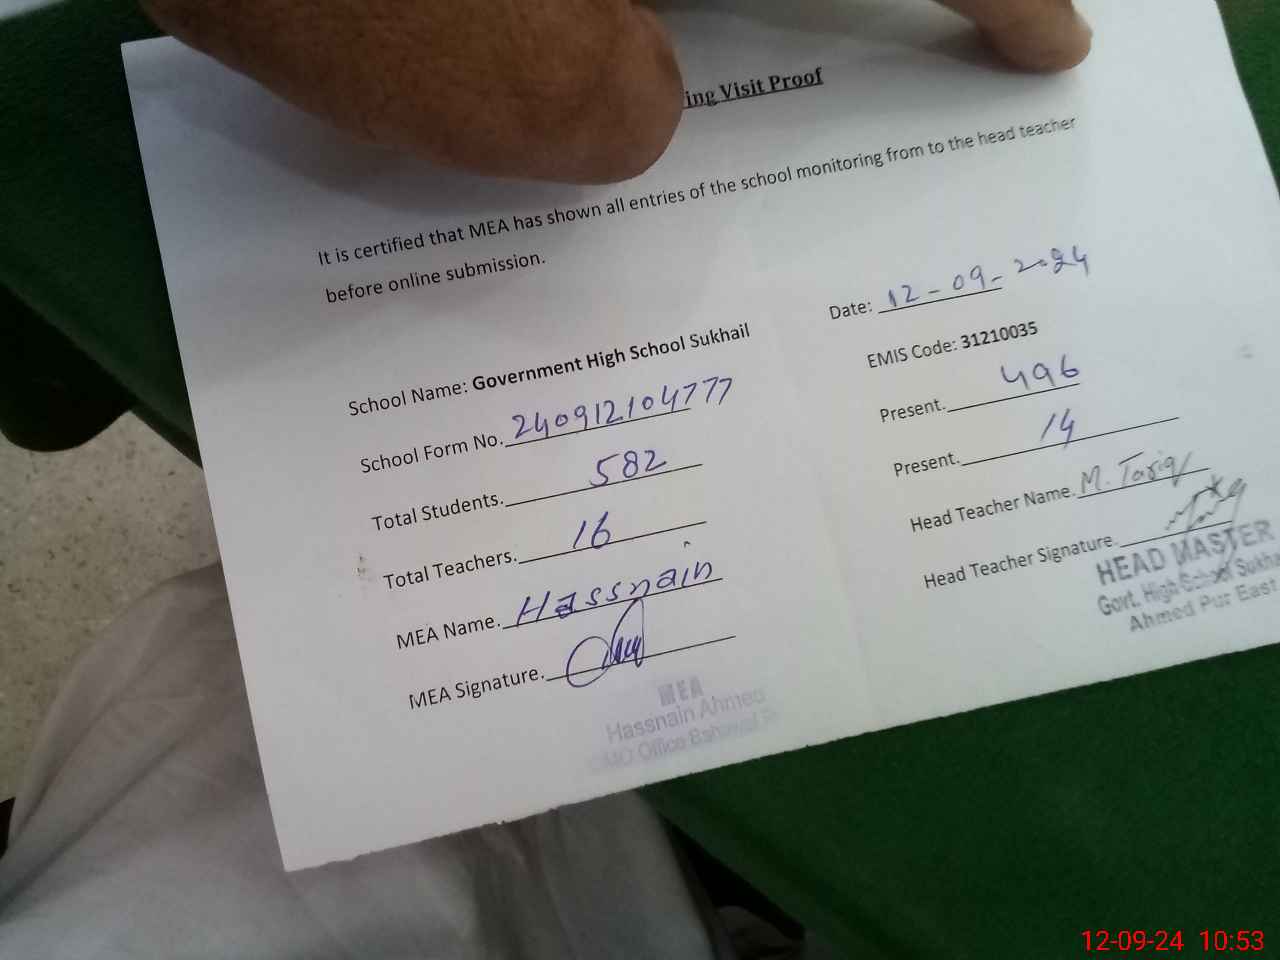 ing Visit Proof
It is certified that MEA has shown all entries of the school monitoring from to the head teacher
before online submission.
Date: 12-09-2024
School Name: Government High School Sukhail
EMIS Code: 31210035
School Form No. 240912104777
Present. 496
Total Students. 582
Present. 14
Total Teachers. 16
Head Teacher Name. M. Tariq
MEA Name. Hassnain
Head Teacher Signature.
HEAD MASTER
Govt. High School Sukhai
Ahmed Pur East
MEA Signature.
MEA
Hassnain Ahmed
MO Office Bahawal P
12-09-24 10:53